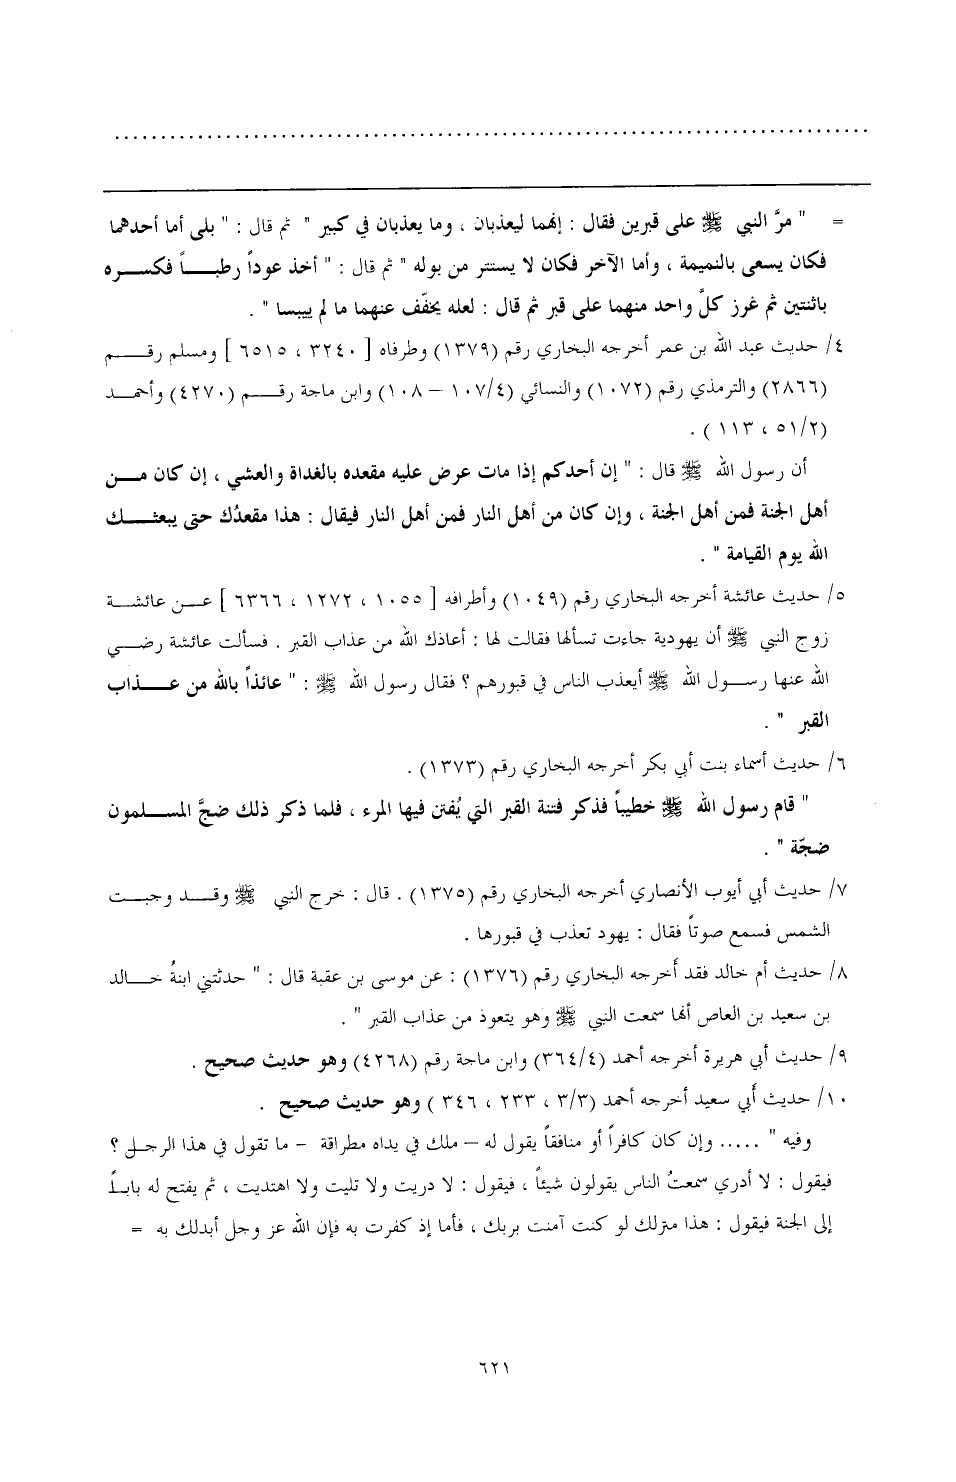 = " مرَّ النبي ﷺ على قبرين فقال : إنهما ليعذبان ، وما يعذبان في كبير " ثم قال : " بلى أما أحدهما
فكان يسعى بالنميمة ، وأما الآخر فكان لا يستتر من بوله " ثم قال : " أخذ عوداً رطبـــاً فكســره
باثنتين ثم غرز كلَّ واحد منهما على قبر ثم قال : لعله يخفّف عنهما ما لم ييبسا " .
٤/ حديث عبد الله بن عمر أخرجه البخاري رقم (١٣٧٩) وطرفاه [ ٣٢٤٠ ، ٦٥١٥ ] ومسلم رقــم
(٢٨٦٦) والترمذي رقم (١٠٧٢) والنسائي (٤/١٠٧ – ١٠٨) وابن ماجة رقــم (٤٢٧٠) وأحمــد
(٢/٥١ ، ١١٣ ) .
أن رسول الله ﷺ قال : " إن أحدكم إذا مات عرض عليه مقعده بالغداة والعشي ، إن كان مــن
أهل الجنة فمن أهل الجنة ، وإن كان من أهل النار فمن أهل النار فيقال : هذا مقعدُك حتى يبعثــك
الله يوم القيامة " .
٥/ حديث عائشة أخرجه البخاري رقم (١٠٤٩) وأطرافه [ ١٠٥٥ ، ١٢٧٢ ، ٦٣٦٦ ] عــن عائشــة
زوج النبي ﷺ أن يهودية جاءت تسألها فقالت لها : أعاذك الله من عذاب القبر . فسألت عائشة رضــي
الله عنها رســول الله ﷺ أيعذب الناس في قبورهم ؟ فقال رسول الله ﷺ : " عائذاً بالله من عــذاب
القبر " .
٦/ حديث أسماء بنت أبي بكر أخرجه البخاري رقم (١٣٧٣) .
" قام رسول الله ﷺ خطيباً فذكر فتنة القبر التي يُفتن فيها المرء ، فلما ذكر ذلك ضجَّ المســلمون
ضجّة " .
٧/ حديث أبي أيوب الأنصاري أخرجه البخاري رقم (١٣٧٥) . قال : خرج النبي ﷺ وقــد وجبــت
الشمس فسمع صوتاً فقال : يهود تعذب في قبورها .
٨/ حديث أم خالد فقد أخرجه البخاري رقم (١٣٧٦) : عن موسى بن عقبة قال : " حدثتني ابنةُ خــالد
بن سعيد بن العاص أنها سمعت النبي ﷺ وهو يتعوذ من عذاب القبر " .
٩/ حديث أبي هريرة أخرجه أحمد (٤/٣٦٤) وابن ماجة رقم (٤٢٦٨) وهو حديث صحيح .
١٠/ حديث أبي سعيد أخرجه أحمد (٣/٣ ، ٢٣٣ ، ٣٤٦ ) وهو حديث صحيح .
وفيه " ..... وإن كان كافراً أو منافقاً يقول له – ملك في يداه مطراقة – ما تقول في هذا الرجــل ؟
فيقول : لا أدري سمعتُ الناس يقولون شيئاً ، فيقول : لا دريت ولا تليت ولا اهتديت ، ثم يفتح له بابــاً
إلى الجنة فيقول : هذا منزلك لو كنت آمنت بربك ، فأما إذ كفرت به فإن الله عز وجل أبدلك به =
٦٢١